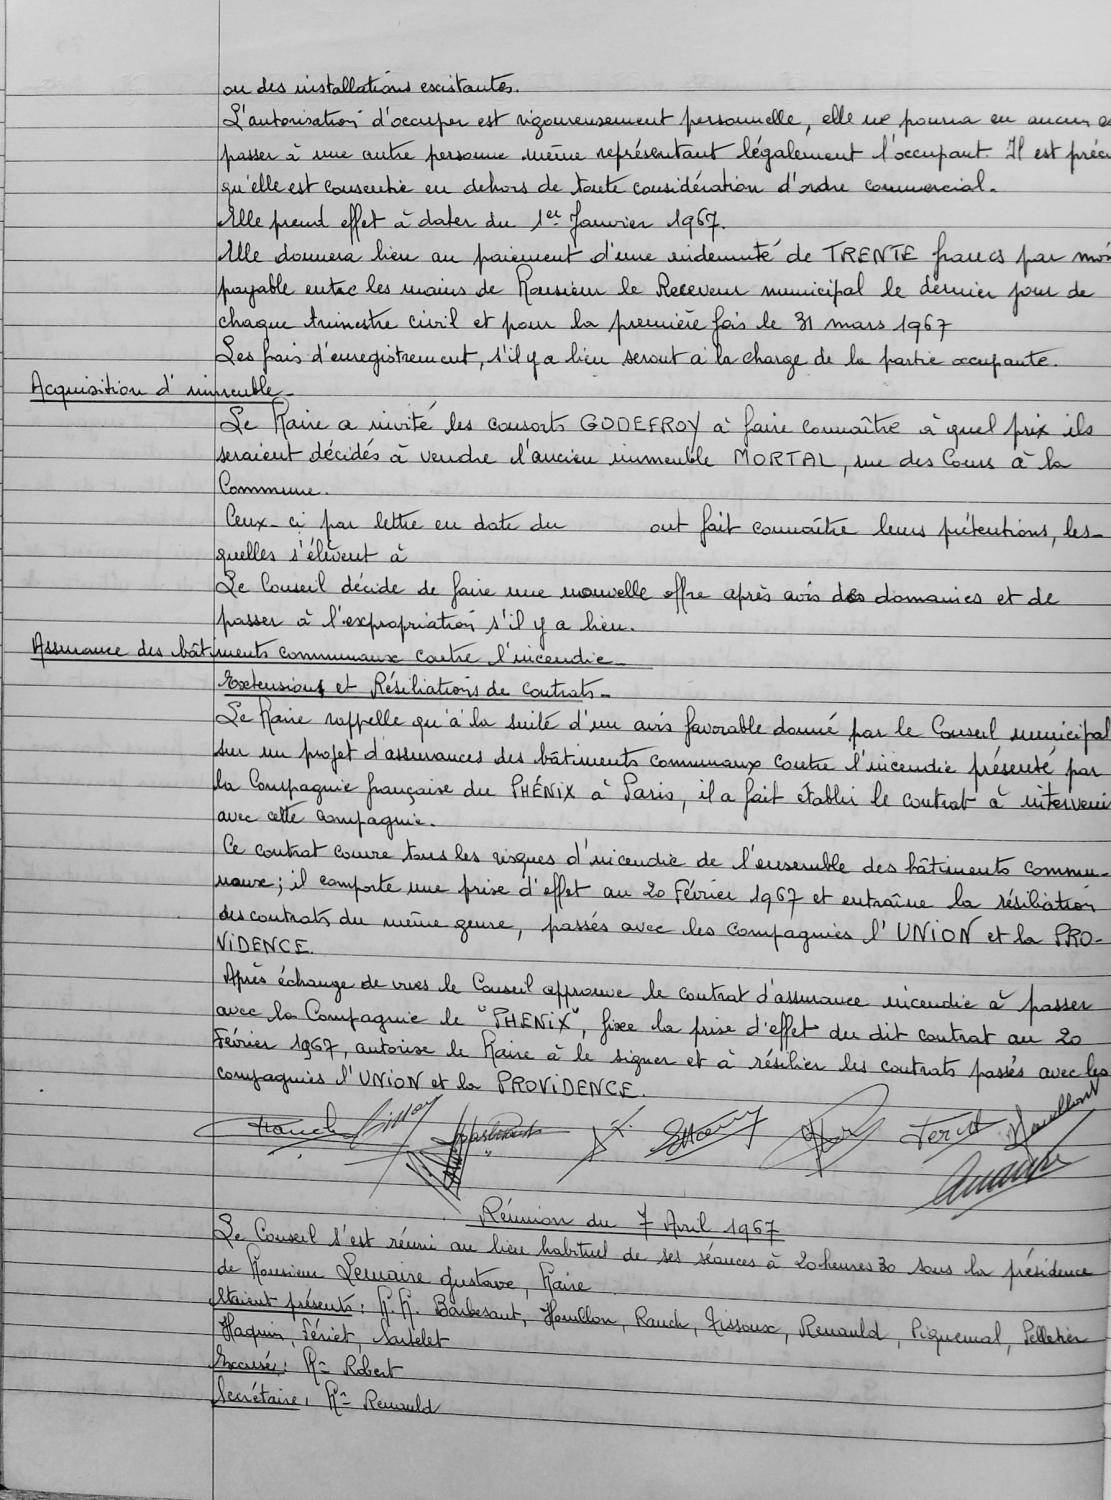 ou des installations existantes.
L'autorisation d'occuper est rigoureusement personnelle, elle ne pourra en aucun
passer à une autre personne même représentant légalement l'occupant. Il est
qu'elle est consentie en dehors de toute considération d'ordre commercial.
Elle prend effet à dater du 1er Janvier 1967.
Elle donnera lieu au paiement d'une indemnité de TRENTE francs par
payable entre les mains de Monsieur le Receveur municipal le dernier jour de
chaque trimestre civil et pour la première fois le 31 mars 1967
Les frais d'enregistrement, s'il y a lieu seront à la charge de la partie occupante.
Acquisition d'immeuble
Le Maire a invité les consorts GODEFROY à faire connaître à quel prix ils
seraient décidés à vendre l'ancien immeuble MORTAL, rue des Cours à la
Commune.
Ceux-ci par lettre en date du ont fait connaître leurs prétentions, les-
quelles s'élèvent à
Le Conseil décide de faire une nouvelle offre après avis des domaines et de
passer à l'expropriation s'il y a lieu.
Assurance des bâtiments communaux contre l'incendie
Extensions et Résiliations de Contrats
Le Maire rappelle qu'à la suite d'un avis favorable donné par le Conseil municipal
sur un projet d'assurances des bâtiments communaux contre l'incendie présenté par
la Compagnie française du PHÉNIX à Paris, il a fait établir le contrat à intervenir
avec cette compagnie.
Ce contrat couvre tous les risques d'incendie de l'ensemble des bâtiments commu-
naux; il comporte une prise d'effet au 20 Février 1967 et entraîne la résiliation
des contrats du même genre, passés avec les compagnies l'UNION et la PRO-
VIDENCE.
Après échange de vues le Conseil approuve le contrat d'assurance incendie à passer
avec la Compagnie le "PHENIX", fixe la prise d'effet du dit contrat au 20
Février 1967, autorise le Maire à le signer et à résilier les contrats passés avec les
compagnies l'UNION et la PROVIDENCE.
Réunion du 7 Avril 1967
Le Conseil s'est réuni au lieu habituel de ses séances à 20 heures 30 sous la présidence
de Monsieur Lemaire Gustave, Maire
Etaient présents: M.M. Barbesant, Houllon, Rauch, Tissoux, Renauld, Piquemal, Pelletier
Haquin, Fériet, Sartelet
Excusé: Mr Robert
Secrétaire: Mr Renauld